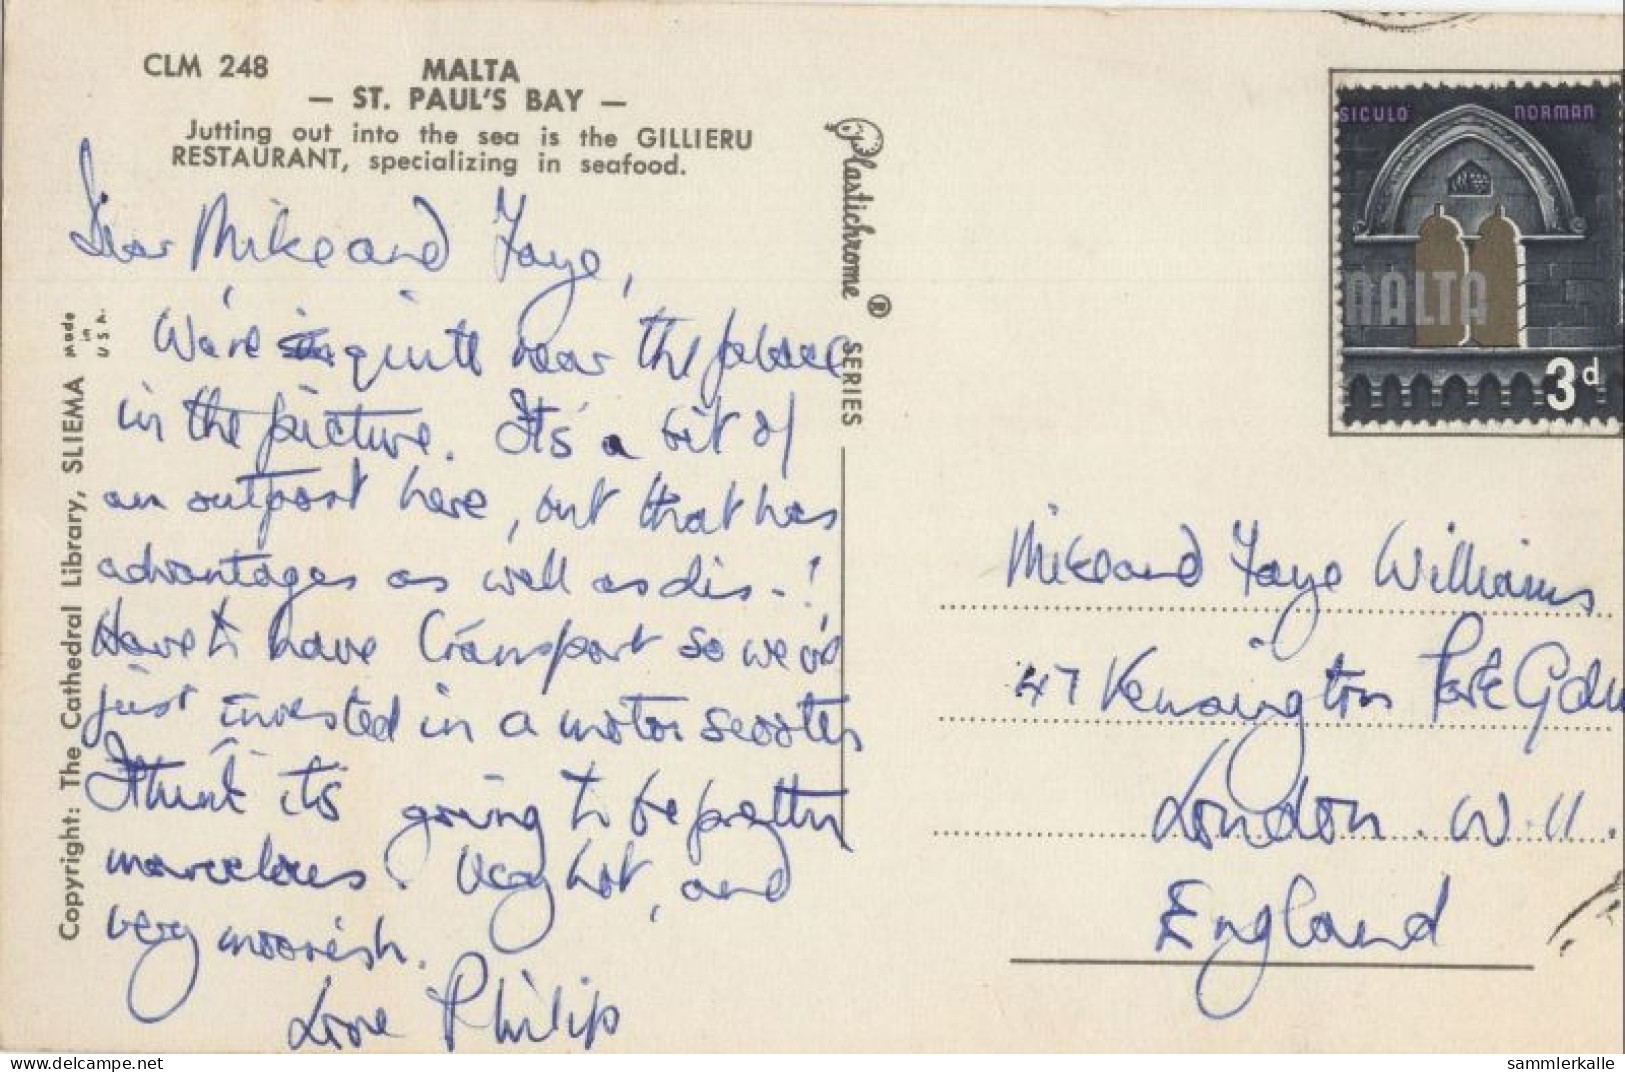 CLM 248
MALTA
— ST. PAUL'S BAY —
Jutting out into the sea is the GILLIERU
RESTAURANT, specializing in seafood.
Dear Mike and Faye,
We're quite near the palace
in the picture. It's a bit of
an outpost here, but that has
advantages as well as dis-!
Have to have transport so we've
just invested in a motor scooter
I think it's going to be pretty
marvelous. Very hot, and
very moorish.
Love Philip
Copyright: The Cathedral Library, SLIEMA
Made
in
U S A.
Plastichrome ® SERIES
SICULO NORMAN
MALTA
3d
Mike and Faye Williams
47 Kensington Park Gdn
London. W.11.
England
www.delcampe.net
sammlerkalle